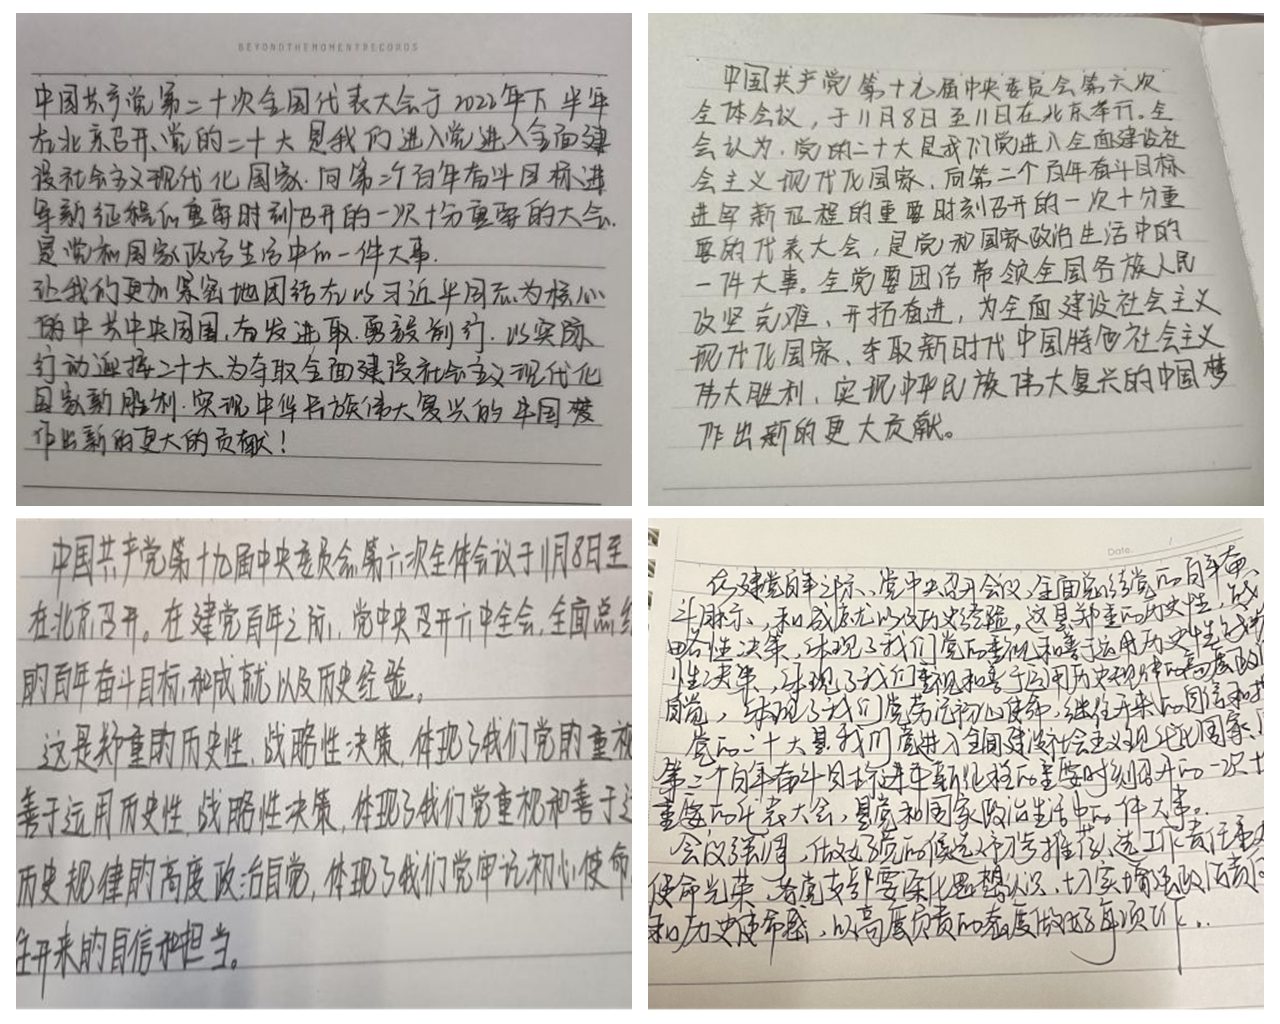 BEYONDTHEMOMENTRECORDS
中国共产党第二十次全国代表大会于2022年下半年
在北京召开、党的二十大是我们进入党进入全面建
设社会主义现代化国家.向第二个百年奋斗目标进
军新征程的重要时刻召开的一次十分重要的大会.
是党和国家政治生活中的一件大事.
让我们更加紧密地团结在以习近平同志为核心
的中共中央周围,奋发进取.勇毅前行.以实际
行动迎接二十大.为夺取全面建设社会主义现代化
国家新胜利.实现中华民族伟大复兴的中国梦
作出新的更大的贡献!
中国共产党第十九届中央委员会第六次
全体会议，于11月8日至11日在北京举行.全
会认为.党的二十大是我们党进入全面建设社
会主义现代化国家、向第二个百年奋斗目标
进军新征程的重要时刻召开的一次十分重
要的代表大会，是党和国家政治生活中的
一件大事。全党要团结带领全国各族人民
攻坚克难、开拓奋进，为全面建设社会主义
现代化国家、夺取新时代中国特色社会主义
伟大胜利、实现中华民族伟大复兴的中国梦
作出新的更大贡献。
中国共产党第十九届中央委员会第六次全体会议于11月8日至
在北京召开。在建党百年之际，党中央召开六中全会,全面总结
的百年奋斗目标和成就以及历史经验。
这是郑重的历史性,战略性决策,体现了我们党的重视
善于运用历史性,战略性决策,体现了我们党重视和善于运
历史规律的高度政治自觉,体现了我们党牢记初心使命
往开来的自信和担当。
Date.
在建党百年之际、党中央召开会议,全面总结党的百年奋
斗目标,和成就以及历史经验。这是郑重的历史性,战
略性决策、体现了我们党的重视和善于运用历史性战略
性决策,体现了我们重视和善于运用历史规律的高度政治
自觉,体现了我们党牢记初心使命,继往开来的自信和担
党的二十大是我们党进入全面建设社会主义现代化国家、
第二个百年奋斗目标进军新征程的重要时刻召开的一次十
重要的代表大会,是党和国家政治生活中的一件大事。
会议强调,做好党的候选补考推荐人选工作责任重大
使命光荣、各党支部要深化思想认识、切实增强政治责任
和历史使命感、以高度负责的态度做好每项工作..